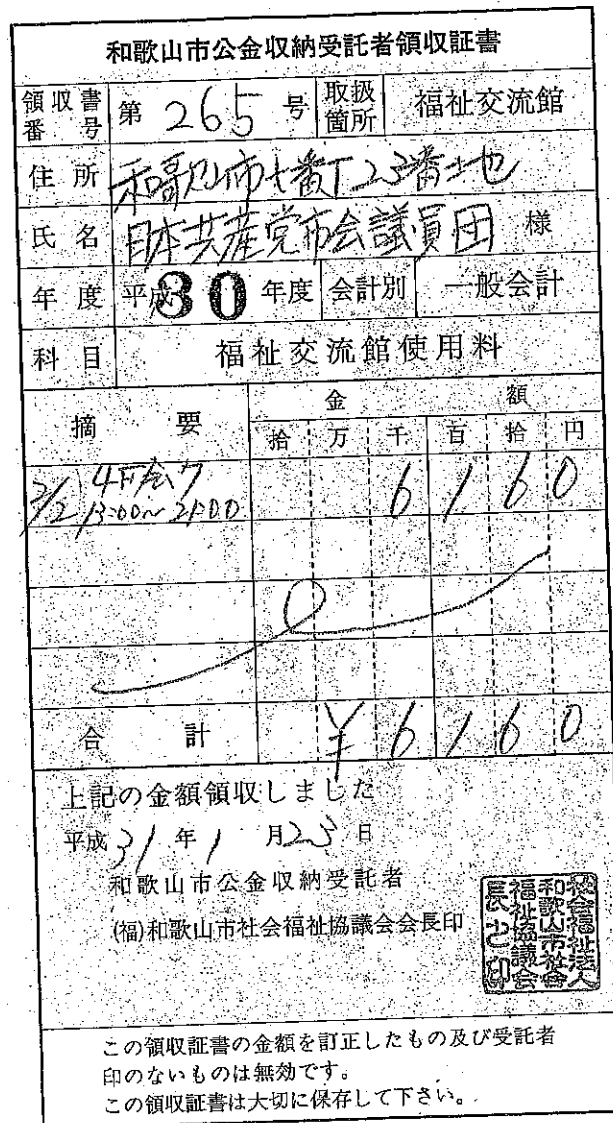 和歌山市公金収納受託者領収証書
領収書番号 第 265 号 取扱箇所 福祉交流館
住所 和歌山市七番丁23番地
氏名 日本共産党市会議員団 様
年度 平成30年度 会計別 一般会計
科目 福祉交流館使用料
摘要 金額
拾 万 千 百 拾 円
2/2 6160
13:00~21:00
合計 ¥6160
上記の金額領収しました
平成31年1月23日
和歌山市公金収納受託者
(福)和歌山市社会福祉協議会会長印
社会福祉法人和歌山市社会福祉協議会会長之印
この領収証書の金額を訂正したもの及び受託者
印のないものは無効です。
この領収証書は大切に保存して下さい。